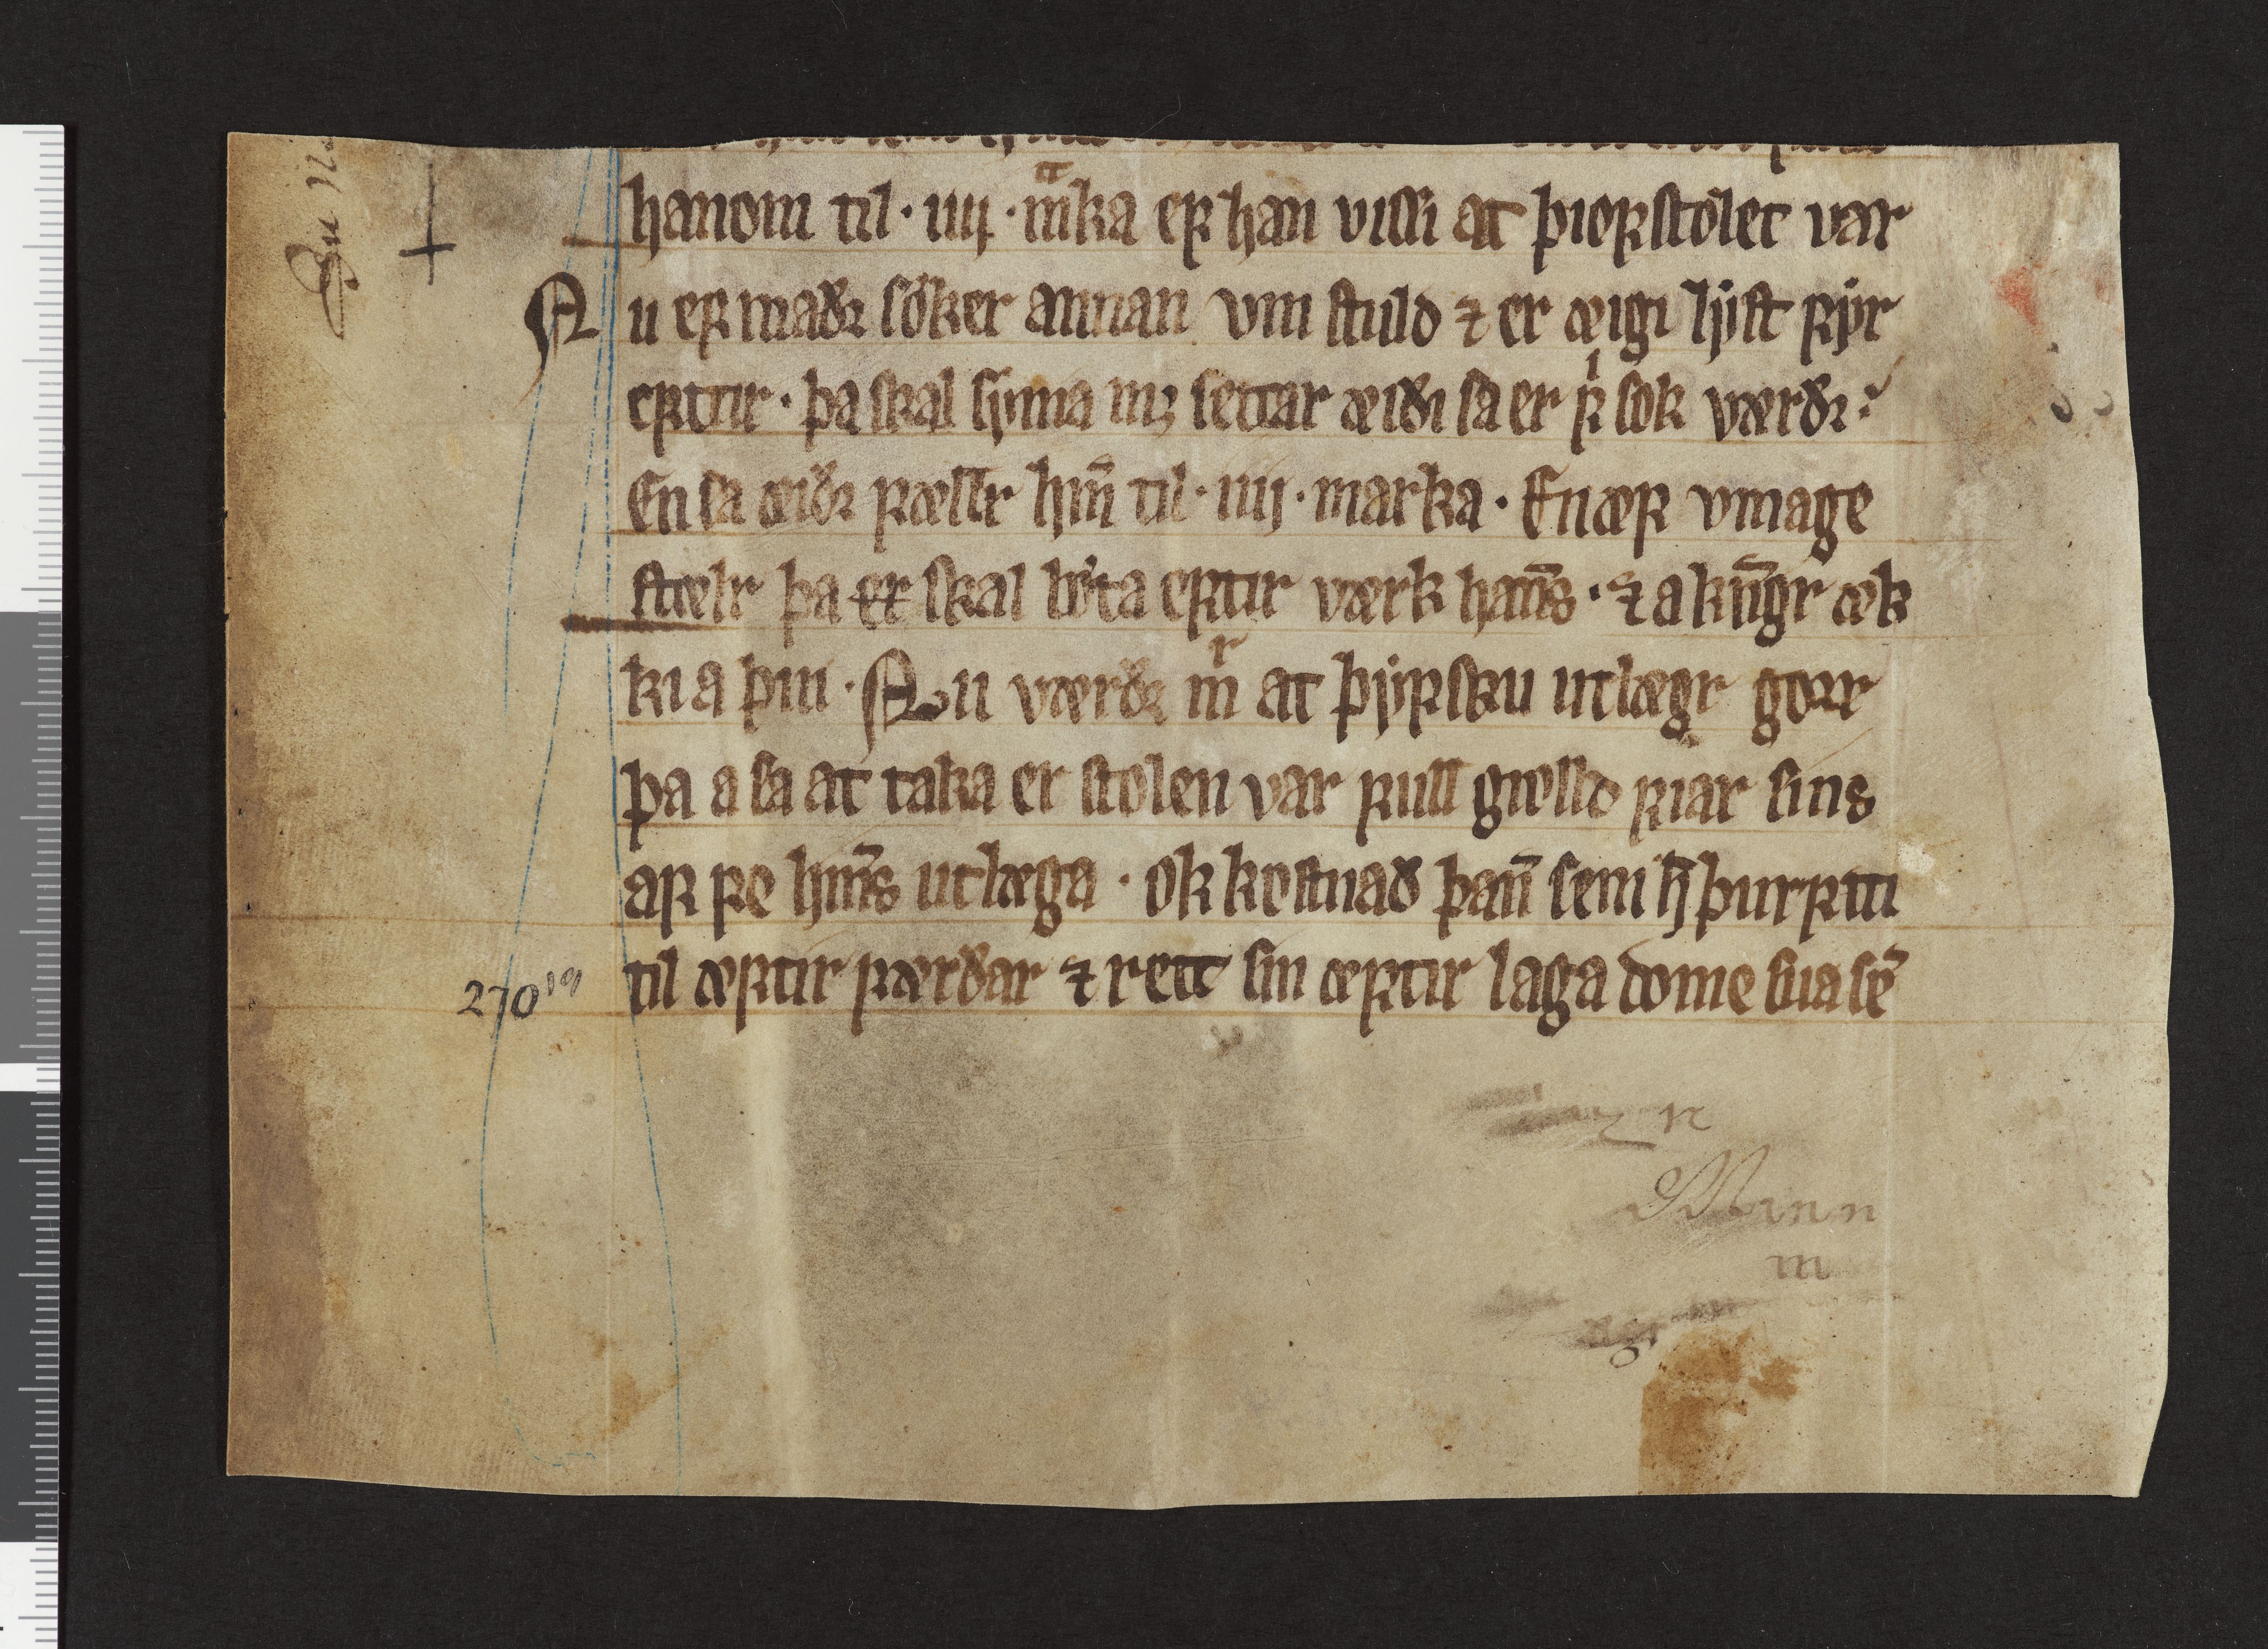 hanom til · iiij · mᵃka eꝼ han vissi at þioꝼstolet var
Nu eꝼ maðꝛ söker annan vm stuld ⁊ er æigi lyst ꝼyr
eꝼtir · þa skal synia mꝫ settar æiði sa er ꝼⁱ sok værðꝛ
En sa æiðꝛ ꝼællr hm̅ til · iiij · marka · En æꝼ vmage
stælr þa er skal böta eꝼtir værk han̅s · ⁊ a kn̅gr æk
ki a þui · Nu værðꝛ mʳ at þyꝼsku utlægr gorr
þa a sa at taka er stolen var ꝼull giolld ꝼiar sins
aꝼ ꝼe hm̅s utlæga · ok kostnað þan̅ sem h̅ þurꝼtti
til æꝼtir ꝼærðar ⁊ rett sin æꝼtir laga dome sua se̅
270
n
Minn
m